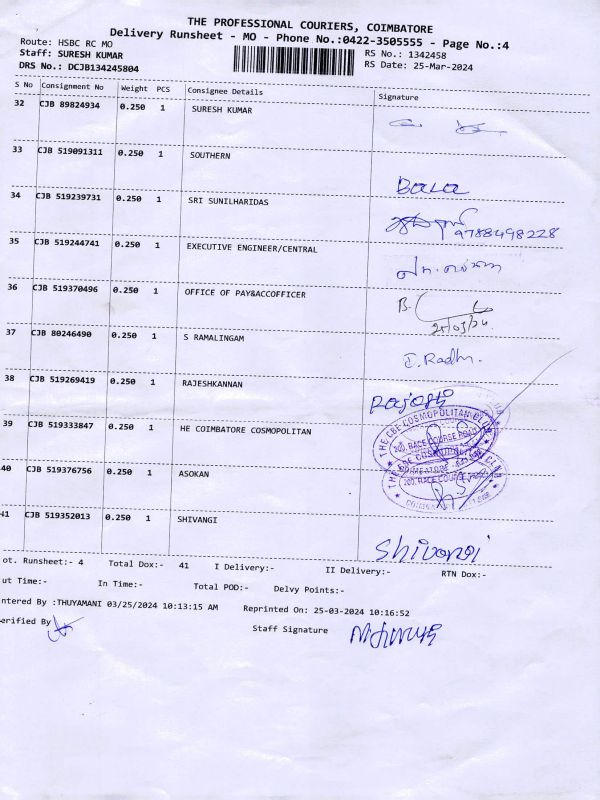 THE PROFESSIONAL COURIERS, COIMBATORE
Delivery Runsheet - MO - Phone No.:0422-3505555 - Page No.:4
Route: HSBC RC MO RS No.: 1342458
Staff: SURESH KUMAR RS Date: 25-Mar-2024
DRS No.: DCJB134245804
S No Consignment No Weight PCS Consignee Details Signature
32 CJB 89824934 0.250 1 SURESH KUMAR
33 CJB 519091311 0.250 1 SOUTHERN Bala
34 CJB 519239731 0.250 1 SRI SUNILHARIDAS 9788498228
35 CJB 519244741 0.250 1 EXECUTIVE ENGINEER/CENTRAL
36 CJB 519370496 0.250 1 OFFICE OF PAY&ACCOFFICER B.
25/03/24
37 CJB 80246490 0.250 1 S RAMALINGAM
38 CJB 519269419 0.250 1 RAJESHKANNAN
39 CJB 519333847 0.250 1 HE COIMBATORE COSMOPOLITAN THE CBE COSMOPOLITAN CLUB
200, RACE COURSE ROAD
40 CJB 519376756 0.250 1 ASOKAN
200, RACE COURSE ROAD
41 CJB 519352013 0.250 1 SHIVANGI Shivangi
ot. Runsheet:- 4 Total Dox:- 41 I Delivery:- II Delivery:- RTN Dox:-
ut Time:- In Time:- Total POD:- Delvy Points:-
ntered By :THUYAMANI 03/25/2024 10:13:15 AM Reprinted On: 25-03-2024 10:16:52
erified By
Staff Signature